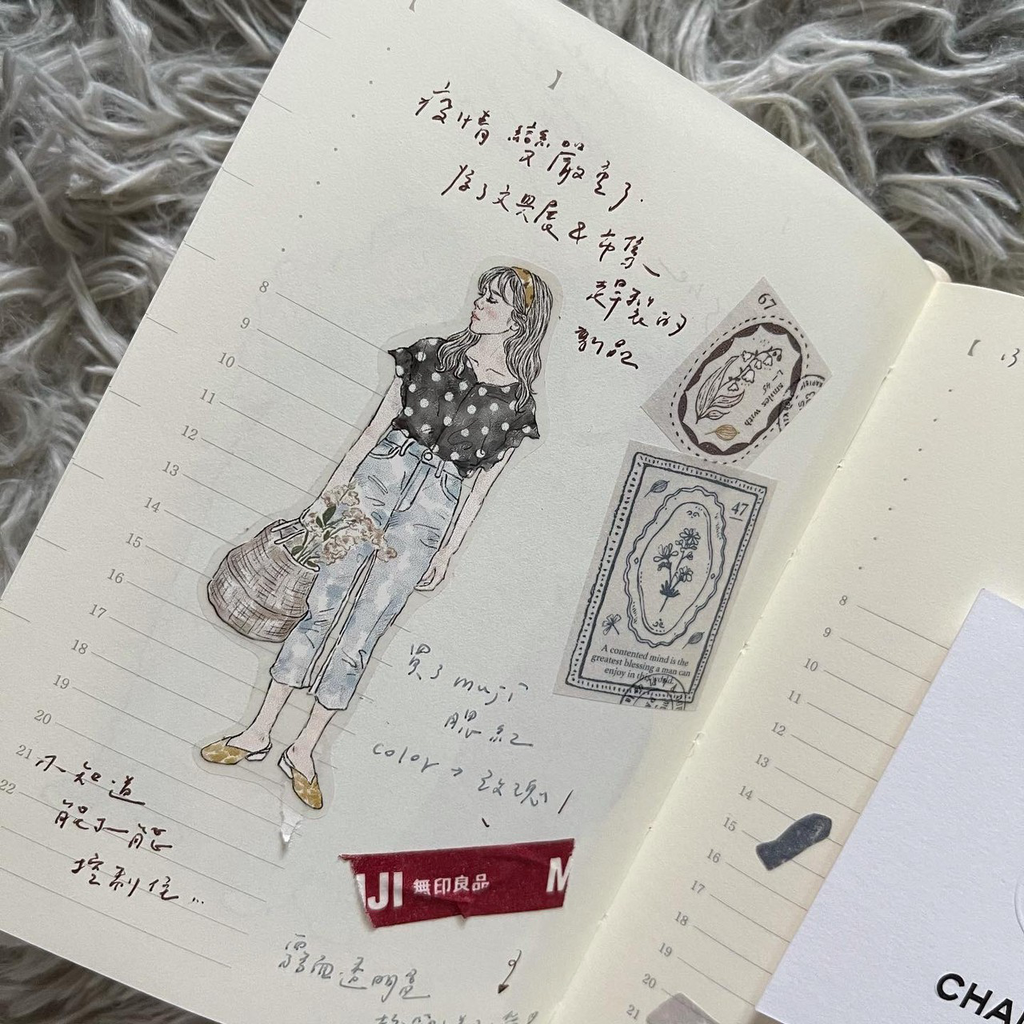 疫情變嚴重了.
除了文具展 & 市集
尋到的
新品
67
smiles with
47
A contented mind is the
greatest blessing a man can
enjoy in this world.
8
9
10
11
12
13
14
15
16
17
18
19
20
21
22
買了 muji
腮紅
color → 玫瑰!
不知道
能不能
控制住...
JI 無印良品 M
霧面透明盒
8
9
10
11
12
13
14
15
16
17
18
19
20
21
CHA